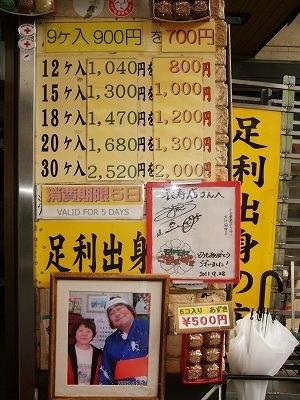 9ケ入 900円 を 700円
12ケ入 1,040円を 800円
15ケ入 1,300円を 1,000円
18ケ入 1,470円を 1,200円
20ケ入 1,680円を 1,300円
30ケ入 2,520円を 2,000円
消費期限5日
VALID FOR 5 DAYS
足利出身
さんへ
2011.9.28
6コ入り あずき
¥500円
足利出身の